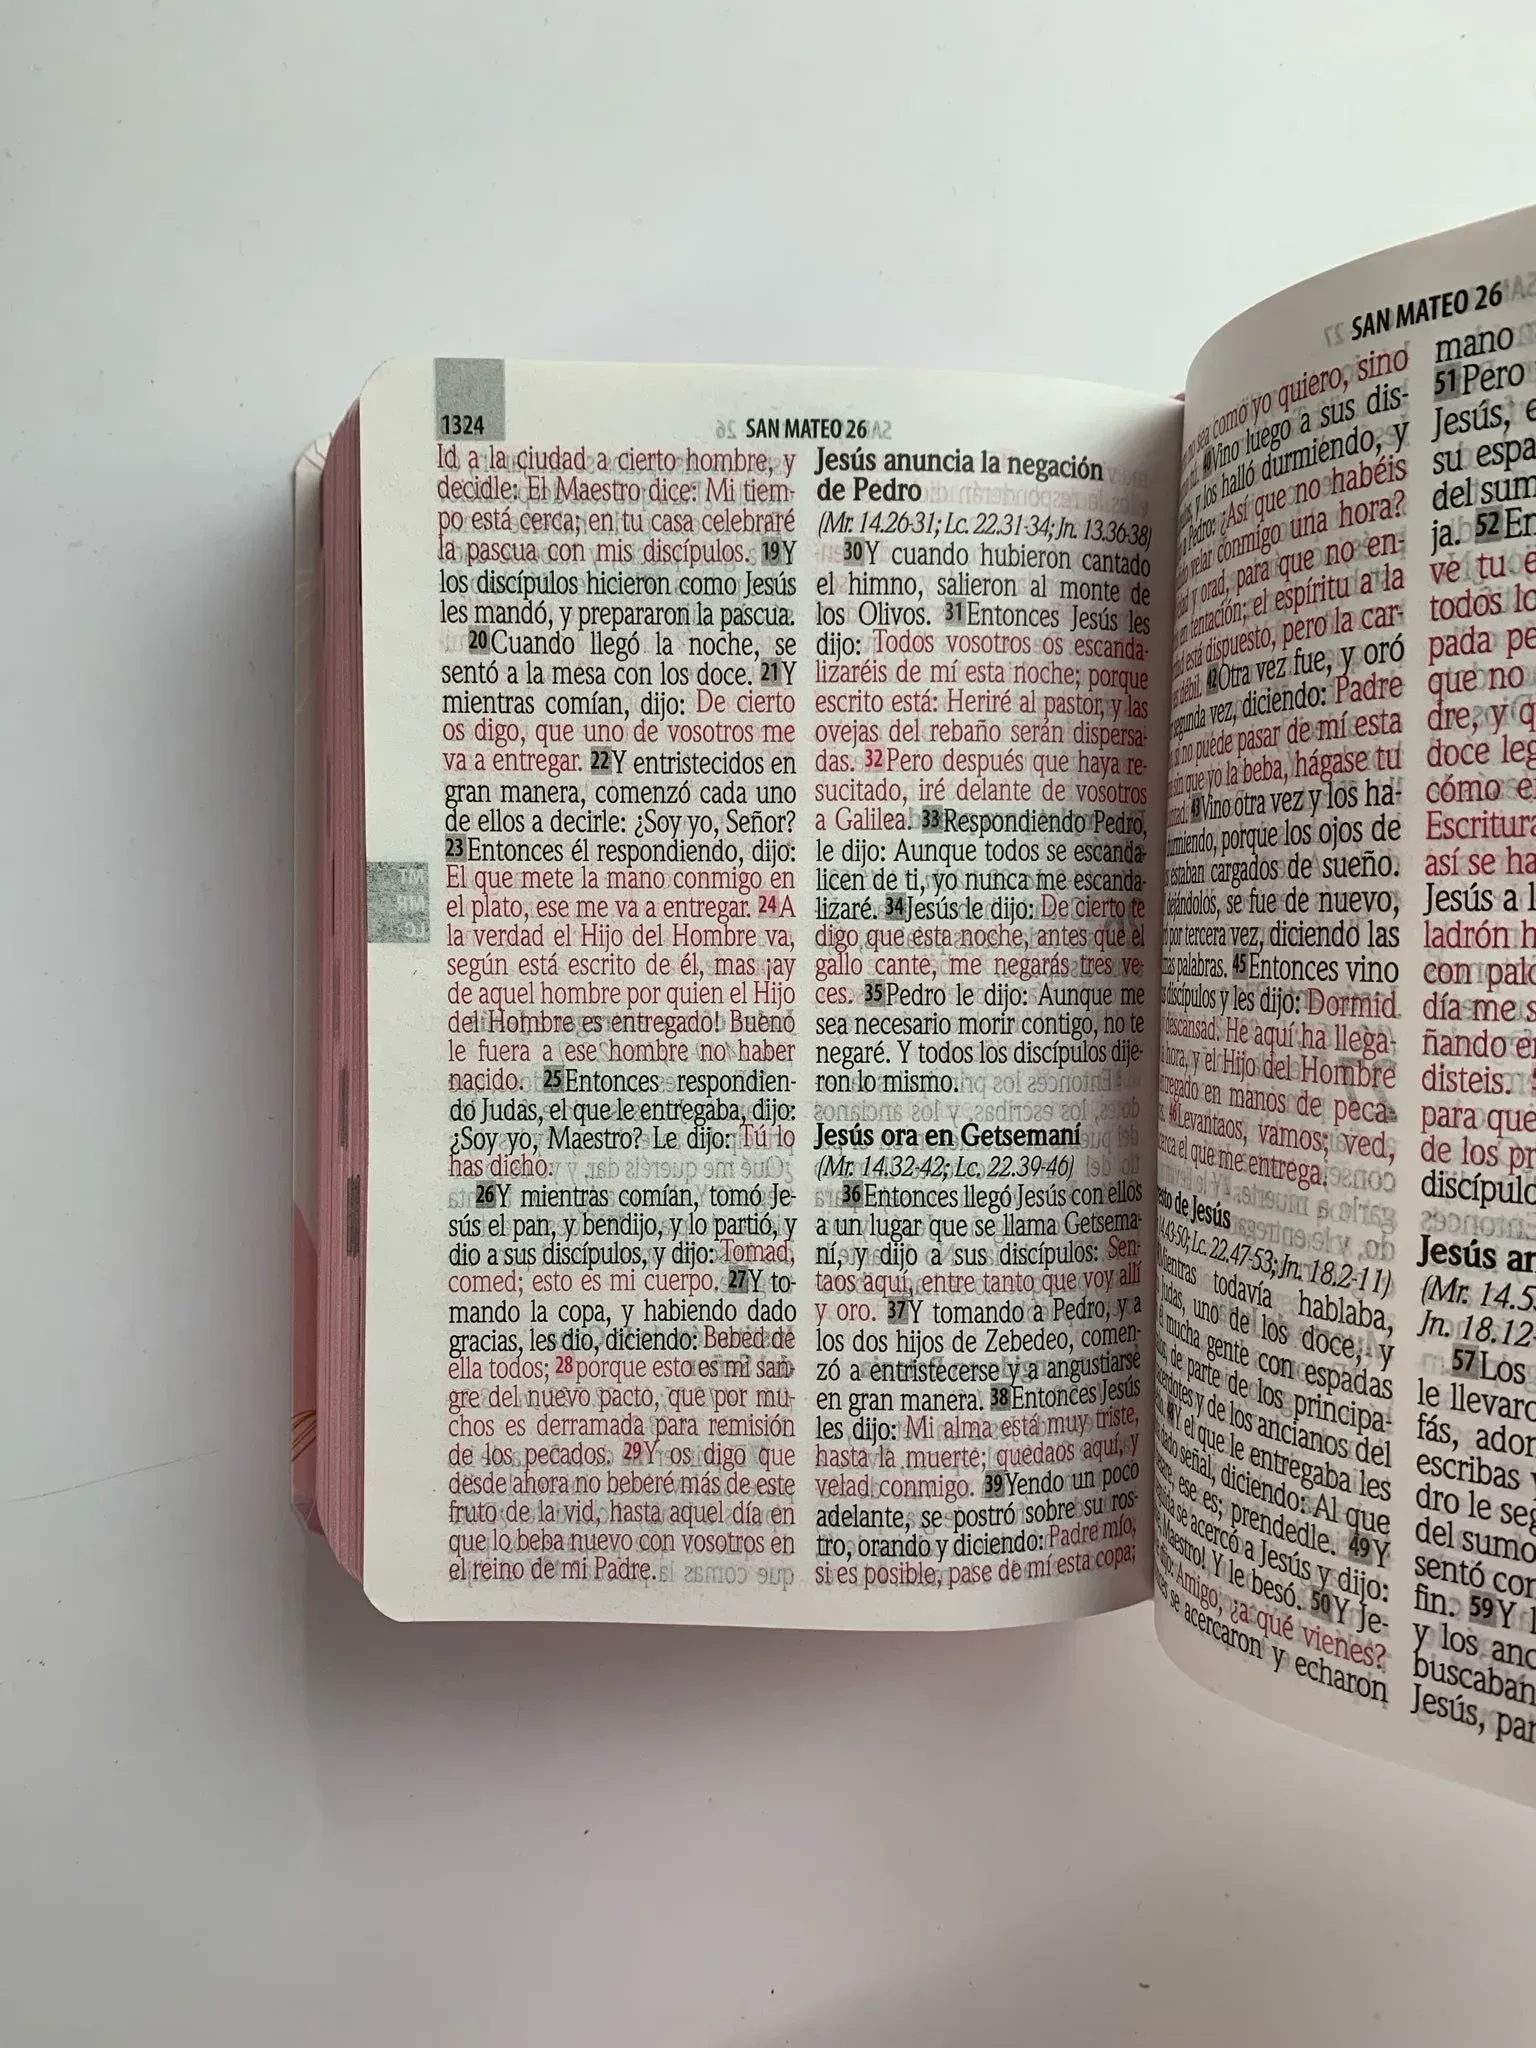 1324
SAN MATEO 26
Id a la ciudad a cierto hombre, y
decidle: El Maestro dice: Mi tiem-
po está cerca; en tu casa celebraré
la pascua con mis discípulos. 19Y
los discípulos hicieron como Jesús
les mandó, y prepararon la pascua.
20Cuando llegó la noche, se
sentó a la mesa con los doce. 21Y
mientras comían, dijo: De cierto
os digo, que uno de vosotros me
va a entregar. 22Y entristecidos en
gran manera, comenzó cada uno
de ellos a decirle: ¿Soy yo, Señor?
23Entonces él respondiendo, dijo:
El que mete la mano conmigo en
el plato, ese me va a entregar. 24A
la verdad el Hijo del Hombre va,
según está escrito de él, mas ¡ay
de aquel hombre por quien el Hijo
del Hombre es entregado! Bueno
le fuera a ese hombre no haber
nacido. 25Entonces respondien-
do Judas, el que le entregaba, dijo:
¿Soy yo, Maestro? Le dijo: Tú lo
has dicho.
26Y mientras comían, tomó Je-
sús el pan, y bendijo, y lo partió, y
dio a sus discípulos, y dijo: Tomad,
comed; esto es mi cuerpo. 27Y to-
mando la copa, y habiendo dado
gracias, les dio, diciendo: Bebed de
ella todos; 28porque esto es mi san-
gre del nuevo pacto, que por mu-
chos es derramada para remisión
de los pecados. 29Y os digo que
desde ahora no beberé más de este
fruto de la vid, hasta aquel día en
que lo beba nuevo con vosotros en
el reino de mi Padre.
Jesús anuncia la negación
de Pedro
(Mr. 14.26-31; Lc. 22.31-34; Jn. 13.36-38)
30Y cuando hubieron cantado
el himno, salieron al monte de
los Olivos. 31Entonces Jesús les
dijo: Todos vosotros os escanda-
lizaréis de mí esta noche; porque
escrito está: Heriré al pastor, y las
ovejas del rebaño serán dispersa-
das. 32Pero después que haya re-
sucitado, iré delante de vosotros
a Galilea. 33Respondiendo Pedro,
le dijo: Aunque todos se escanda-
licen de ti, yo nunca me escanda-
lizaré. 34Jesús le dijo: De cierto te
digo que esta noche, antes que el
gallo cante, me negarás tres ve-
ces. 35Pedro le dijo: Aunque me
sea necesario morir contigo, no te
negaré. Y todos los discípulos dije-
ron lo mismo.
Jesús ora en Getsemaní
(Mr. 14.32-42; Lc. 22.39-46)
36Entonces llegó Jesús con ellos
a un lugar que se llama Getsema-
ní, y dijo a sus discípulos: Sen-
taos aquí, entre tanto que voy allí
y oro. 37Y tomando a Pedro, y a
los dos hijos de Zebedeo, comen-
zó a entristecerse y a angustiarse
en gran manera. 38Entonces Jesús
les dijo: Mi alma está muy triste,
hasta la muerte; quedaos aquí, y
velad conmigo. 39Yendo un poco
adelante, se postró sobre su ros-
tro, orando y diciendo: Padre mío,
si es posible, pase de mí esta copa;
SAN MATEO 26
sea como yo quiero, sino
40Vino luego a sus dis-
y los halló durmiendo, y
a Pedro: ¿Así que no habéis
velar conmigo una hora?
y orad, para que no en-
en tentación; el espíritu a la
está dispuesto, pero la car-
débil. 42Otra vez fue, y oró
segunda vez, diciendo: Padre
si no puede pasar de mí esta
sin que yo la beba, hágase tu
43Vino otra vez y los ha-
durmiendo, porque los ojos de
estaban cargados de sueño.
dejándolos, se fue de nuevo,
por tercera vez, diciendo las
palabras. 45Entonces vino
discípulos y les dijo: Dormid
descansad. He aquí ha llega-
hora, y el Hijo del Hombre
entregado en manos de peca-
46Levantaos, vamos; ved,
cerca el que me entrega.
de Jesús
14.43-50; Lc. 22.47-53; Jn. 18.2-11)
Mientras todavía hablaba,
Judas, uno de los doce, y
mucha gente con espadas
de parte de los principa-
y de los ancianos del
Y el que le entregaba les
señal, diciendo: Al que
ese es; prendedle. 49Y
se acercó a Jesús y dijo:
Maestro! Y le besó. 50Y Je-
dijo: Amigo, ¿a qué vienes?
se acercaron y echaron
mano
51Pero
Jesús,
su espa
del sum
ja. 52En
ve tu
todos lo
pada pe
que no
dre, y q
doce leg
cómo
Escritura
así se ha
Jesús a l
ladrón
con palo
día me s
ñando en
disteis.
para que
de los pr
discípulo
Jesús an
(Mr. 14.5
Jn. 18.12-
57Los
le llevaro
fás, ador
escribas y
dro le seg
del sumo
sentó con
fin. 59Y
y los anc
buscaban
Jesús, par